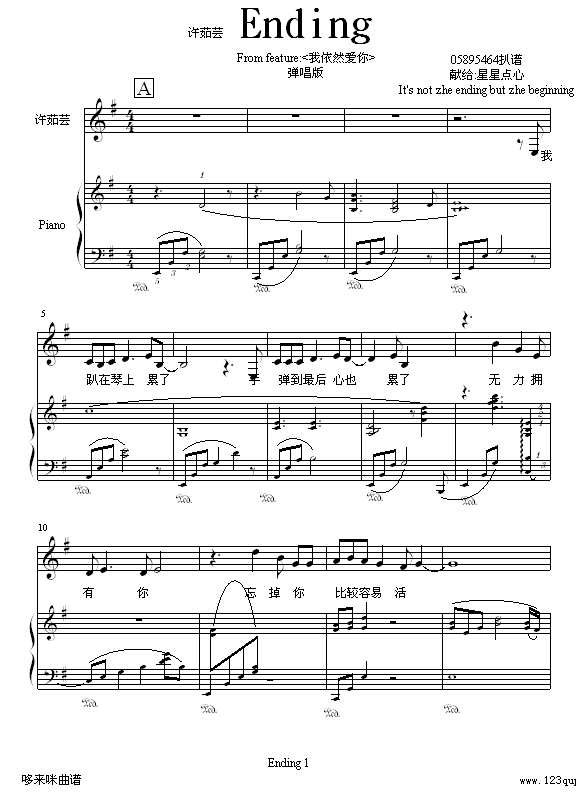 许茹芸 Ending
From feature:<我依然爱你>
弹唱版
05895464扒谱
献给:星星点心
It's not zhe ending but zhe beginning
A
许茹芸
我
Piano
5
趴在琴上 累了 手 弹到最后 心也 累了 无 力 拥
10
有 你 忘 掉 你 比较容易 活
Ending 1
哆来咪曲谱
www.123qup